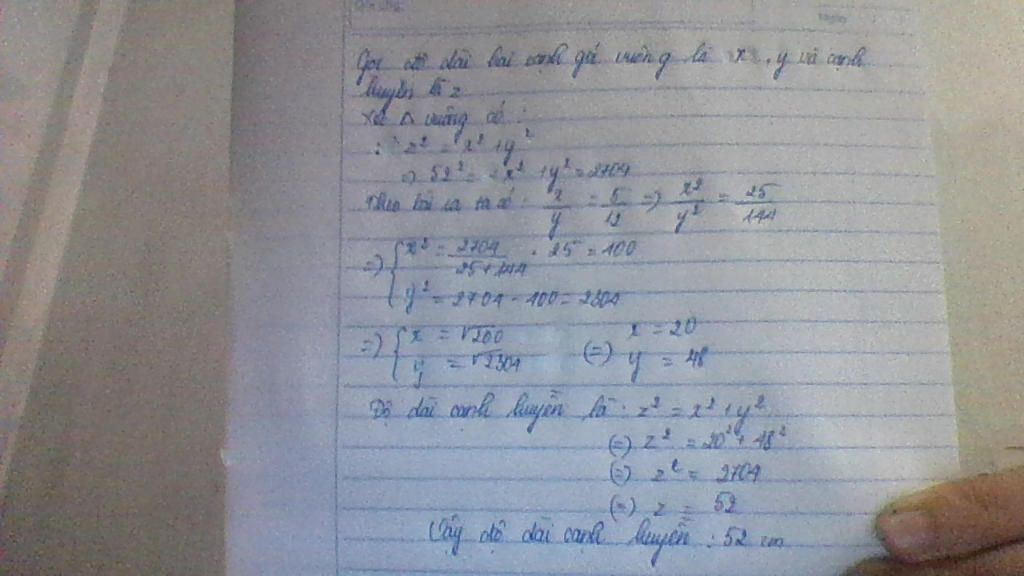 Gọi độ dài hai cạnh góc vuông là x, y và cạnh
huyền là z
Xét Δ vuông có :
: z² = x² + y²
=> 52² = x² + y² = 2704
Theo bài ra ta có : x/y = 5/12 => x²/y² = 25/144
=> { x² = 2704/(25+144) . 25 = 400
y² = 2704 - 400 = 2304
=> { x = √200 (=) x = 20
y = √2304 y = 48
Độ dài cạnh huyền là : z² = x² + y²
(=) z² = 20² + 48²
(=) z² = 2704
(=) z = 52
Vậy độ dài cạnh huyền : 52 cm